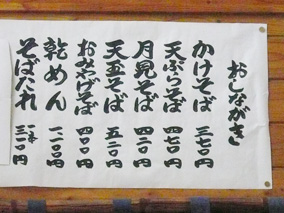 おしながき
かけそば 三七〇円
天ぷらそば 四七〇円
月見そば 四二〇円
天玉そば 五二〇円
おみやげそば 四〇〇円
乾めん 一、二〇〇円
そばたれ 一本 三一〇円